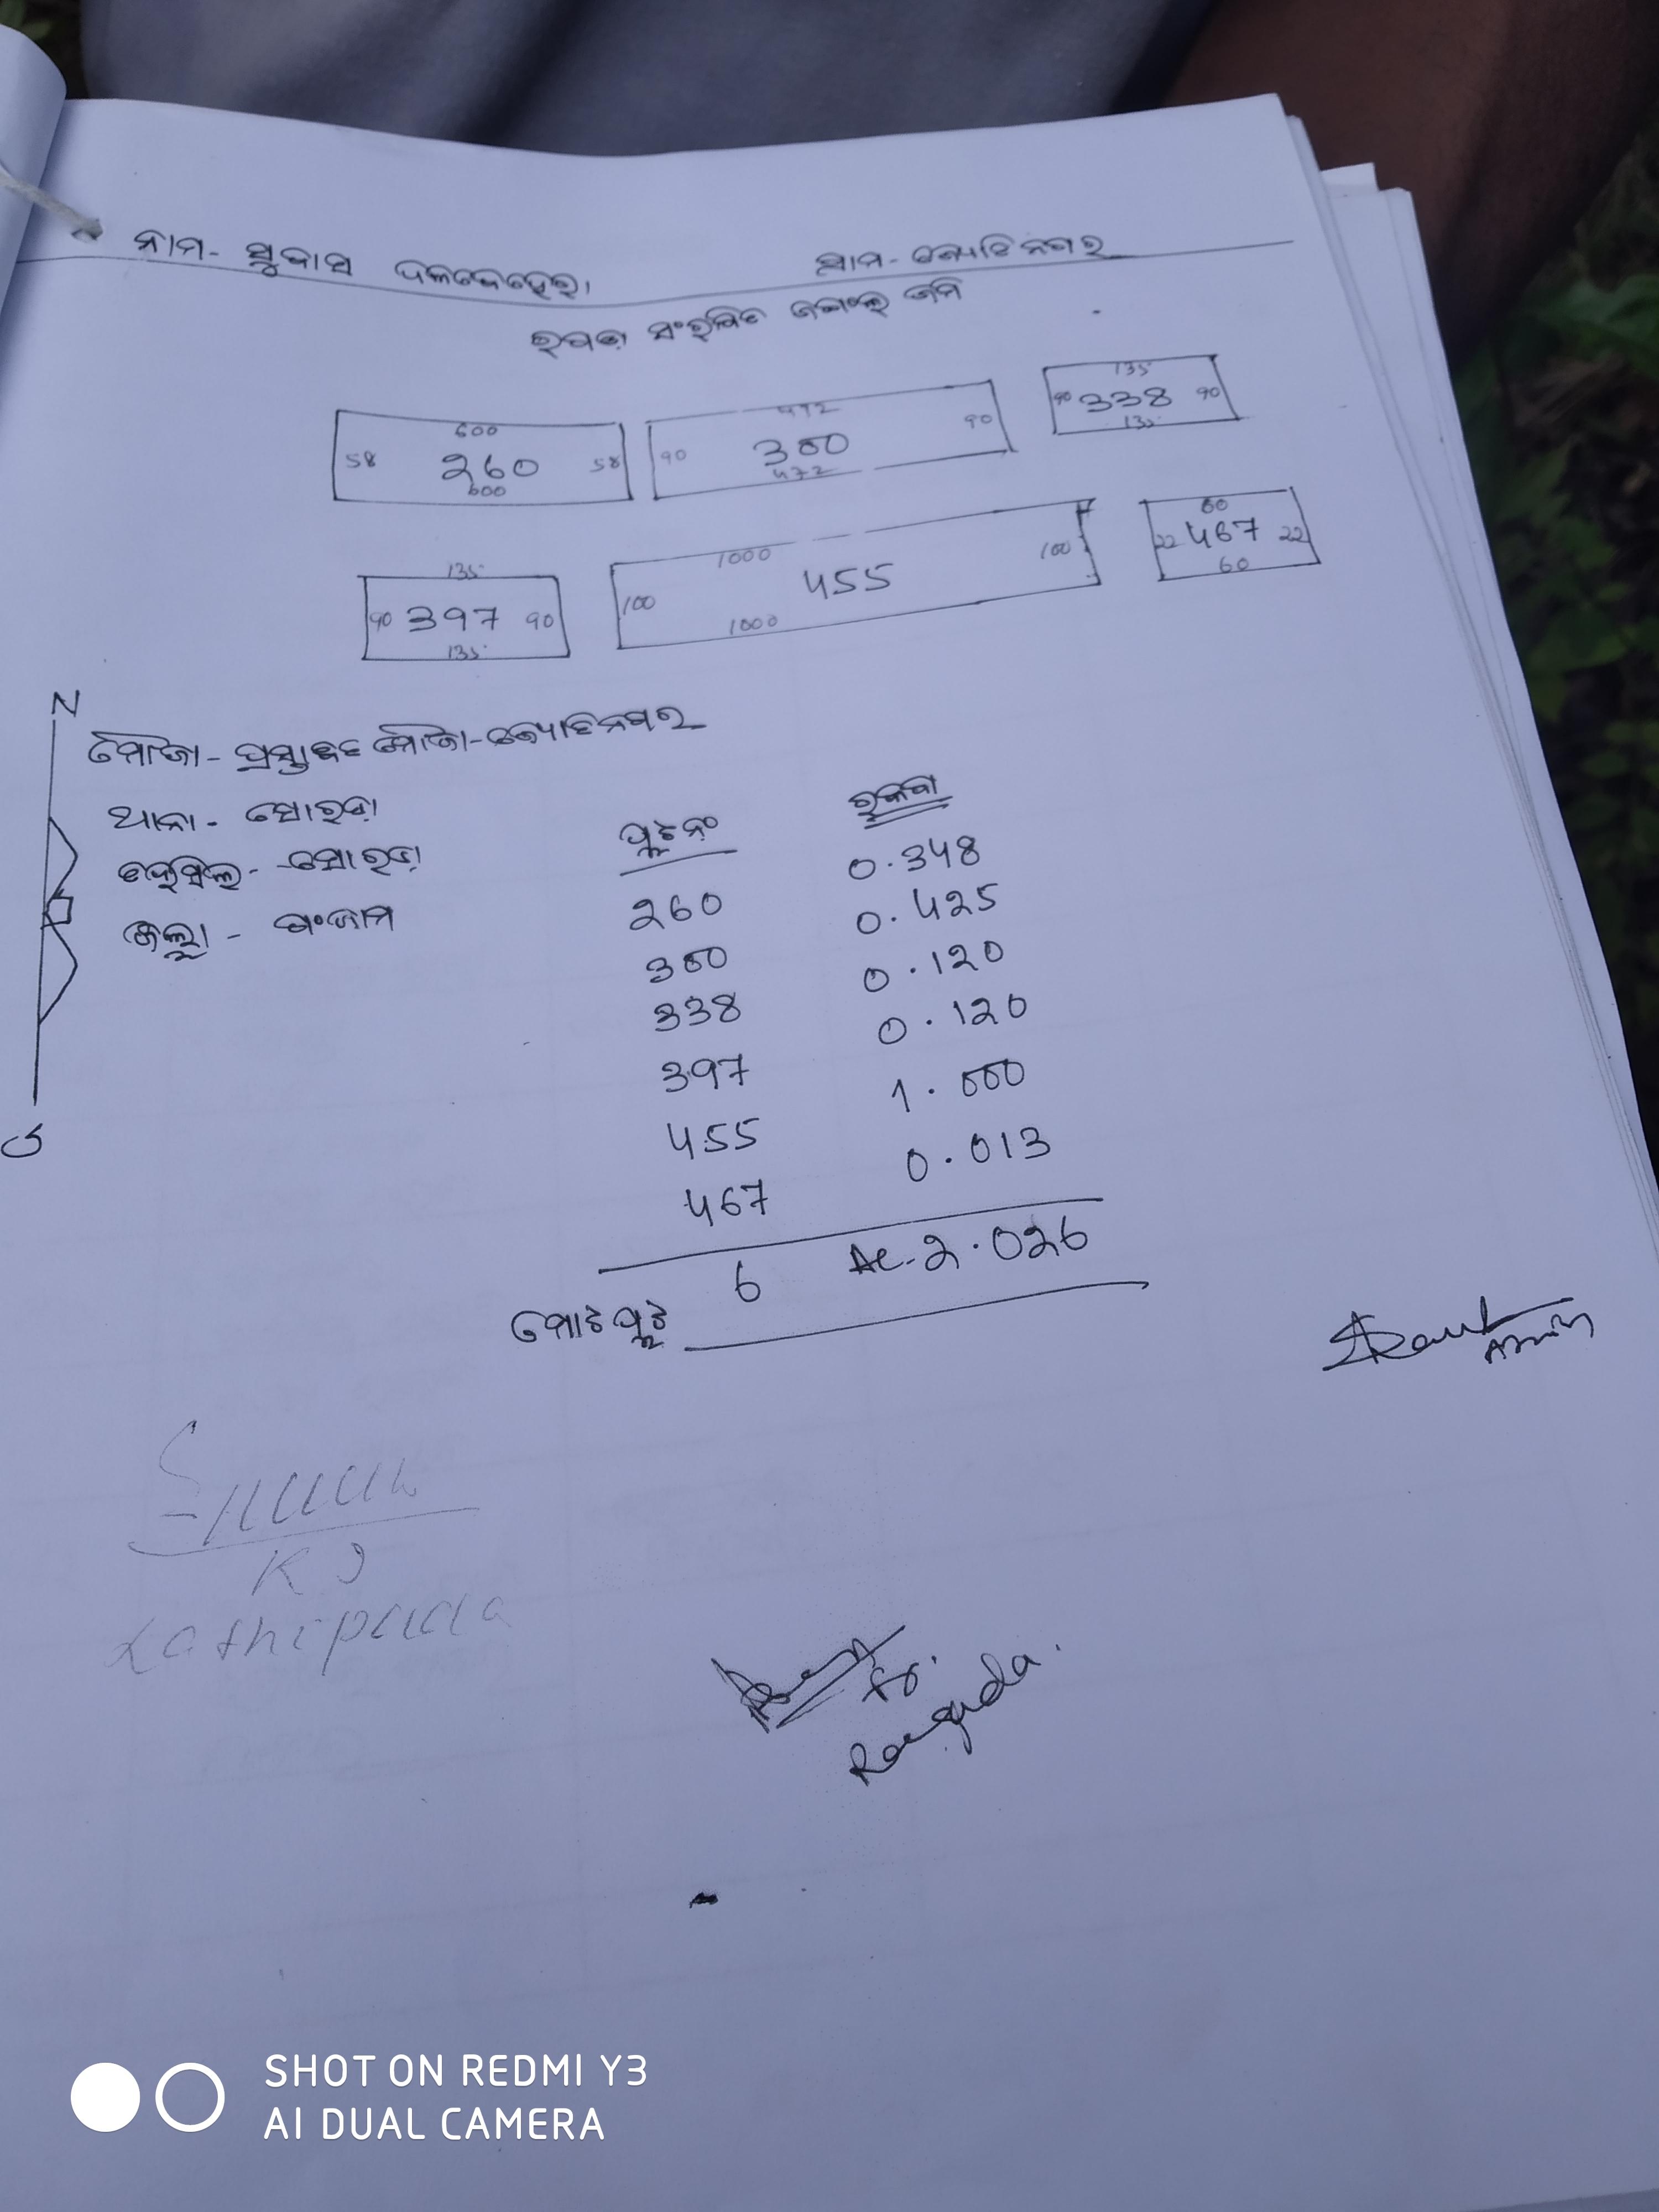 ନାମ- ସୁବାସ ଦଳବେହେରା ଗ୍ରାମ- ଜ୍ୟୋତି ନଗର
ରଗଡ଼ା ସଂରକ୍ଷିତ ଜଙ୍ଗଲ ଜମି
600 472 135
58 260 58 90 300 90 90 338 90
600 472 135
135 1000 60
90 397 90 100 455 100 22 467 22
135 1000 60
N
ମୌଜା- ପ୍ରସ୍ତାବିତ ମୌଜା- ଜ୍ୟୋତିନଗର
ଥାନା- ସୋରଡ଼ା
ତହସିଲ- ସୋରଡ଼ା
ଜିଲ୍ଲା- ଗଂଜାମ
ପ୍ଲଟ ନଂ ରକବା
260 0.348
300 0.425
338 0.120
397 0.120
455 1.000
467 0.013
ମୋଟ ପ୍ଲଟ 6 Ac-2.026
Amin
Fr.
SHOT ON REDMI Y3
AI DUAL CAMERA